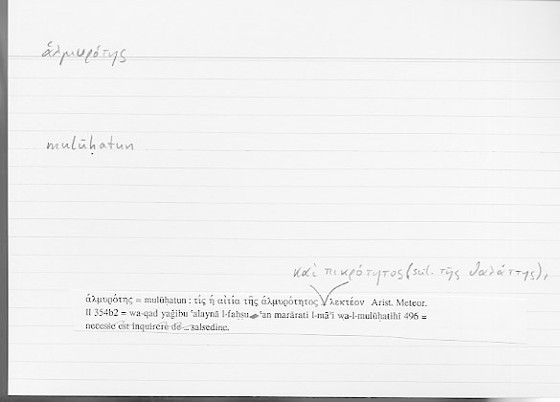 ἁλμυρότης
mulūḥatun
καὶ πικρότητος (scil. τῆς θαλάττης),
ἁλμυρότης = mulūḥatun : τίς ἡ αἰτία τῆς ἁλμυρότητος λεκτέον Arist. Meteor.
II 354b2 = wa-qad yaǧibu ʿalaynā l-faḥṣu ʿan marārati l-māʾi wa-l-mulūḥatihī 496 =
necesse est inquirere de ... salsedine.